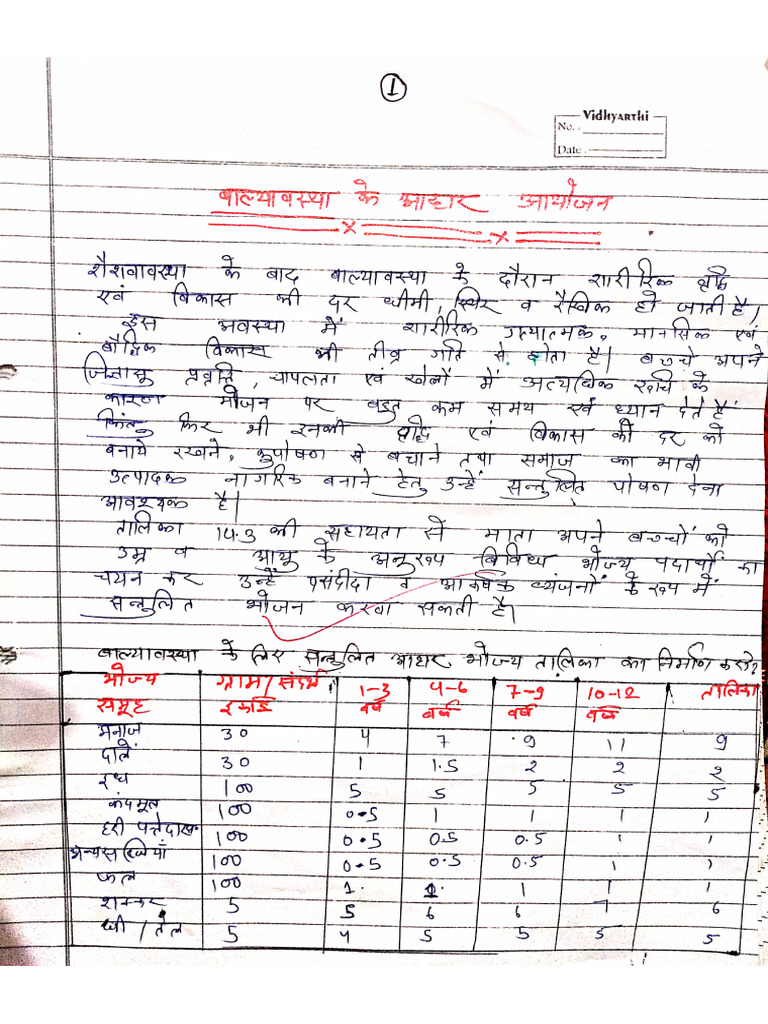 1
Vidhyarthi
No.
Date
बाल्यावस्था के आहार आयोजन
शैशवावस्था के बाद बाल्यावस्था के दौरान शारीरिक वृद्धि
एवं विकास की दर धीमी, स्थिर व रैखिक हो जाती है।
इस अवस्था में शारीरिक गत्यात्मक, मानसिक एवं
बौद्धिक विकास भी तीव्र गति से होता है। बच्चे अपने
जिज्ञासु प्रवृत्ति, चपलता एवं खेलों में अत्यधिक रूचि के
कारण भोजन पर बहुत कम समय एवं ध्यान देते हैं
किंतु फिर भी इनकी वृद्धि एवं विकास की दर को
बनाये रखने, कुपोषण से बचाने तथा समाज का भावी
उत्पादक नागरिक बनाने हेतु उन्हें सन्तुलित पोषण देना
आवश्यक है।
तालिका 14.3 की सहायता से माता अपने बच्चों को
उम्र व आयु के अनुरूप विविध भोज्य पदार्थों का
चयन कर उन्हें पसंदीदा व आकर्षक व्यंजनों के रूप में
सन्तुलित भोजन करवा सकती है।
बाल्यावस्था के लिए सन्तुलित आहार भोज्य तालिका का निर्माण करो?
भोज्य समूह ग्राम/संदर्भ इकाई 1-3 वर्ष 4-6 वर्ष 7-9 वर्ष 10-12 वर्ष तालिका
अनाज 30 4 7 9 11 9
दालें 30 1 1.5 2 2 2
दूध 100 5 5 5 5 5
कंदमूल 100 0.5 1 1 1 1
हरी पत्तेदार 100 0.5 0.5 0.5 1 1
अन्य सब्जियाँ 100 0.5 0.5 0.5 1 1
फल 100 1 1 1 1 1
शक्कर 5 5 6 6 7 6
घी/तेल 5 4 5 5 5 5